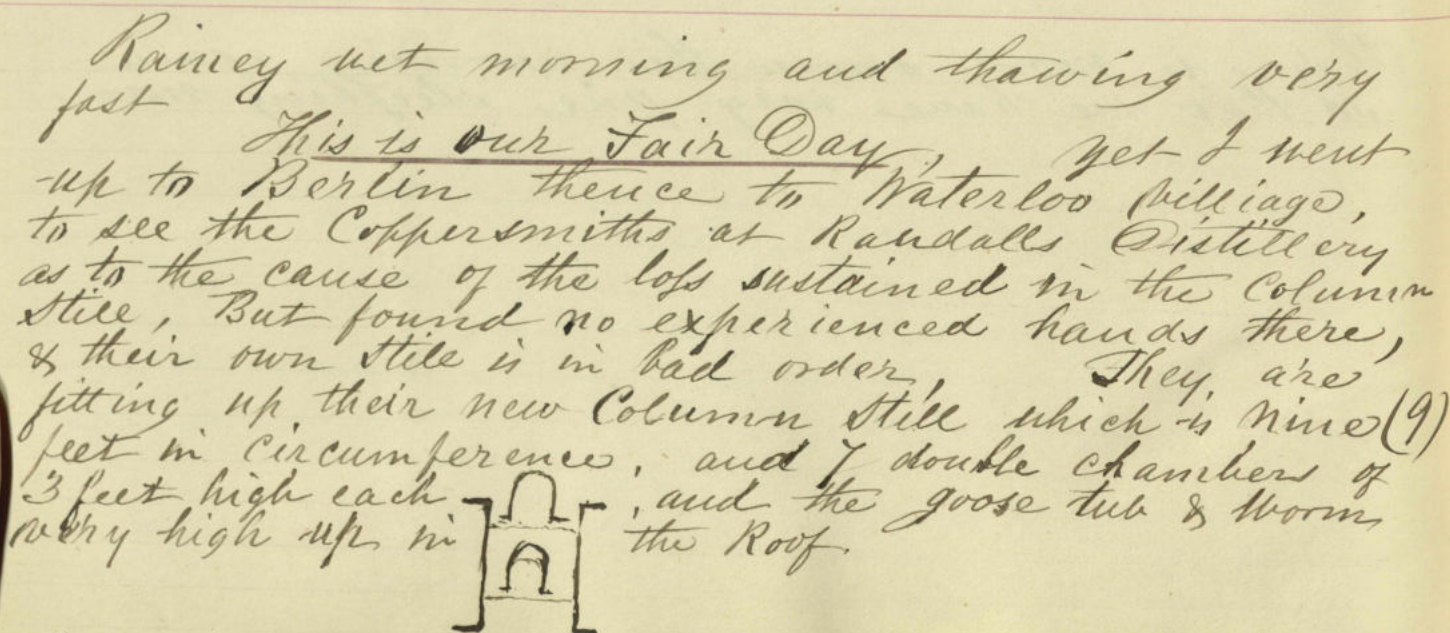 Rainey wet morning and thawing very
fast
This is our Fair Day, yet I went
up to Berlin thence to Waterloo Villiage,
to see the Coppersmiths at Randalls Distillery
as to the cause of the loss sustained in the Column
Still, But found no experienced hands there,
& their own still is in bad order, They are
fitting up their new Column Still which is nine (9)
feet in circumference, and 7 double chambers of
3 feet high each, and the goose tub & Worm
very high up in the Roof.